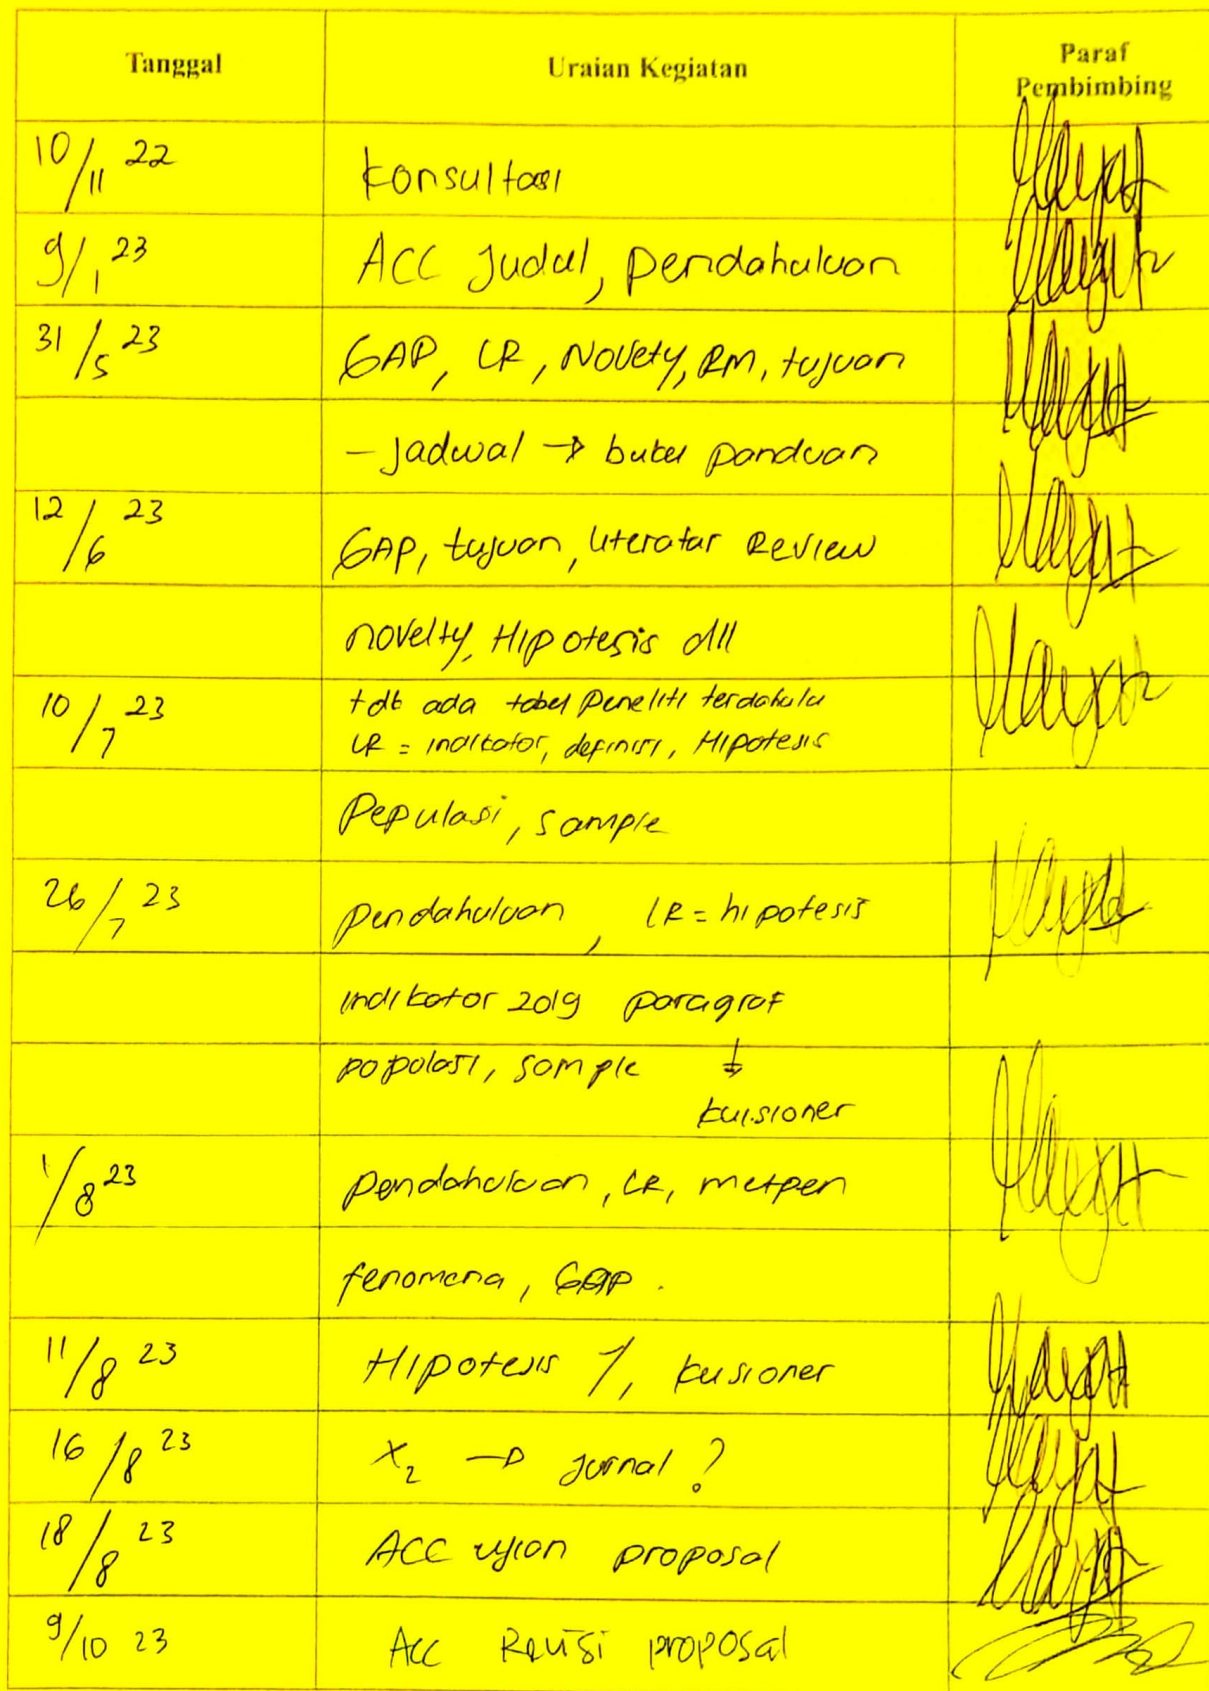 Tanggal Uraian Kegiatan Paraf Pembimbing
10/11 22 Konsultasi
9/1 23 ACC Judul, pendahuluan
31/5 23 GAP, LR, Novety, RM, tujuan
- Jadwal → buku panduan
12/6 23 GAP, tujuan, literatur Review
novelty, Hipotesis dll
10/7 23 tdk ada tabel peneliti terdahulu
LR = indikator, definisi, Hipotesis
Populasi, sample
26/7 23 pendahuluan, LR = hipotesis
indikator 2019 paragraf
populasi, sample ↓
kuisioner
1/8 23 pendahuluan, LR, metpen
fenomena, GAP.
11/8 23 Hipotesis, kusioner
16/8 23 X₂ → Jurnal?
18/8 23 ACC ujian proposal
9/10 23 Acc Revisi proposal